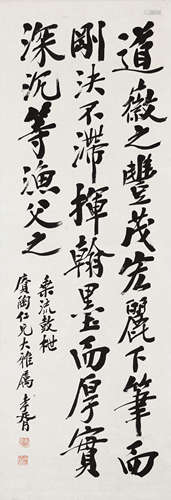 道徽之豐茂宏麗下筆而
剛決不滯揮翰墨而厚實
深沉等漁父之
乘流鼓枻
賡陶仁兄大雅属 李